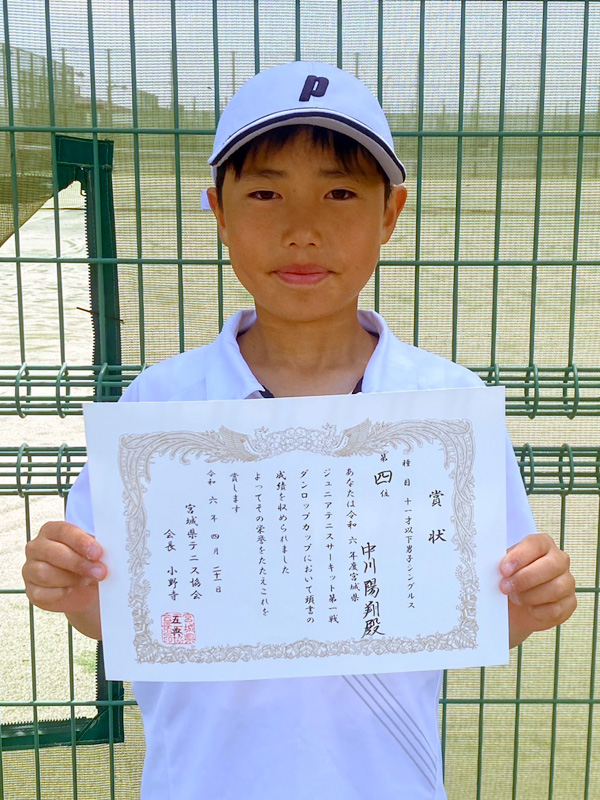 p
賞状
種目 十一才以下男子シングルス
第四位
中川陽翔殿
あなたは令和六年度宮城県
ジュニアテニスサーキット第一戦
ダンロップカップにおいて頭書の
成績を収められました
よってその栄誉をたたえこれを
賞します
令和六年四月二十一日
宮城県テニス協会
会長 小野寺